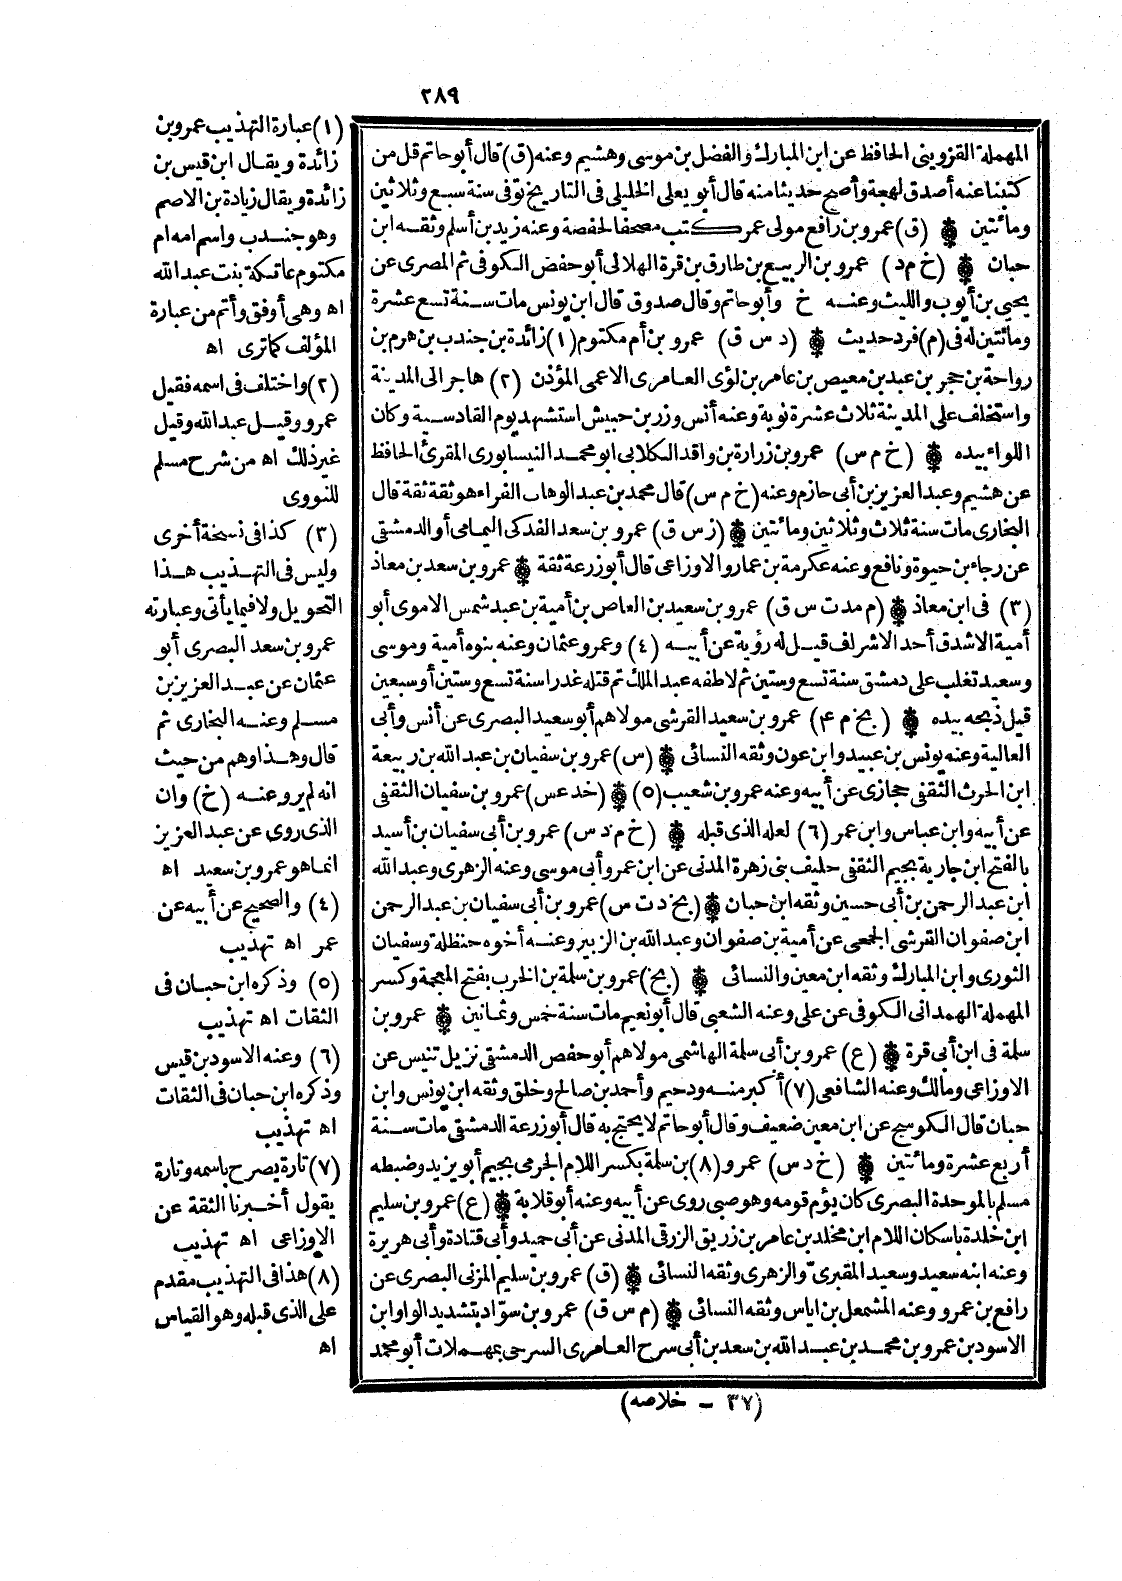 ٢٨٩
المهملة القزويني الحافظ عن ابن المبارك والفضل بن موسى وهشيم وعنه (ق) قال أبو حاتم قل من
كتبنا عنه أصدق لهجة وأصح حديثا منه قال أبو يعلى الخليلي في التاريخ توفي سنة سبع وثلاثين
ومائتين ۞ (ق) عمرو بن رافع مولى عمر كتب مصحفا لحفصة وعنه زيد بن أسلم وثقه ابن
حبان ۞ (خ م د) عمرو بن الربيع بن طارق بن قرة الهلالي أبو حفص الكوفي ثم المصري عن
يحيى بن أيوب والليث وعنه خ وأبو حاتم وقال صدوق قال ابن يونس مات سنة تسع عشرة
ومائتين له في (م) فرد حديث ۞ (د س ق) عمرو بن أم مكتوم (١) زائدة بن جندب بن هرم بن
رواحة بن حجر بن عبد بن معيص بن عامر بن لؤى العامرى الاعمى المؤذن (٢) هاجر الى المدينة
واستخلف على المدينة ثلاث عشرة نوبة وعنه أنس وزر بن حبيش استشهد يوم القادسية وكان
اللواء بيده ۞ (خ م س) عمرو بن زرارة بن واقد الكلابى ابو محمد النيسابورى المقرئ الحافظ
عن هشيم وعبد العزيز بن أبى حازم وعنه (خ م س) قال محمد بن عبد الوهاب الفراء هو ثقة ثقة قال
البخارى مات سنة ثلاث وثلاثين ومائتين ۞ (ز س ق) عمرو بن سعد الفدكى اليمامى أو الدمشقى
عن رجاء بن حيوة ونافع وعنه عكرمة بن عمار والاوزاعى قال أبو زرعة ثقة ۞ عمرو بن سعد بن معاذ
(٣) فى ابن معاذ ۞ (م مد ت س ق) عمرو بن سعيد بن العاص بن أمية بن عبد شمس الاموى أبو
أمية الاشدق أحد الاشراف قيل له رؤية عن أبيه (٤) وعمرو عثمان وعنه بنوه أمية وموسى
وسعيد تغلب على دمشق سنة تسع وستين ثم لاطفه عبد الملك ثم قتله غدرا سنة تسع وستين أو سبعين
قيل ذبحه بيده ۞ (بخ م ٤) عمرو بن سعيد القرشى مولاهم أبو سعيد البصرى عن أنس وأبى
العالية وعنه يونس بن عبيد وابن عون وثقه النسائى ۞ (س) عمرو بن سفيان بن عبد الله بن ربيعة
ابن الحرث الثقفى حجازى عن أبيه وعنه عمرو بن شعيب (٥) ۞ (خد عس) عمرو بن سفيان الثقفى
عن أبيه وابن عباس وابن عمر (٦) لعله الذى قبله ۞ (خ م د س) عمرو بن أبى سفيان بن أسيد
بالفتح ابن جارية بجيم الثقفى حليف بنى زهرة المدنى عن ابن عمر وأبى موسى وعنه الزهرى وعبد الله
ابن عبد الرحمن بن أبى حسين وثقه ابن حبان ۞ (بخ د ت س) عمرو بن أبى سفيان بن عبد الرحمن
ابن صفوان القرشى الجمحى عن أمية بن صفوان وعبد الله بن الزبير وعنه أخوه حنظلة وسفيان
الثورى وابن المبارك وثقه ابن معين والنسائى ۞ (بخ) عمرو بن سلمة بن الخرب بفتح المعجمة وكسر
المهملة الهمدانى الكوفى عن على وعنه الشعبى قال أبو نعيم مات سنة خمس وثمانين ۞ عمرو بن
سلمة فى ابن أبى قرة ۞ (ع) عمرو بن أبى سلمة الهاشمى مولاهم أبو حفص الدمشقى نزيل تنيس عن
الاوزاعى ومالك وعنه الشافعى (٧) أكبر منه ودحيم وأحمد بن صالح وخلق وثقه ابن يونس وابن
حبان قال الكوسج عن ابن معين ضعيف وقال أبو حاتم لا يحتج به قال أبو زرعة الدمشقى مات سنة
أربع عشرة ومائتين ۞ (خ د س) عمرو (٨) بن سلمة بكسر اللام الجرمى بجيم أبو يزيد وضبطه
مسلم بالموحدة البصرى كان يؤم قومه وهو صبى روى عن أبيه وعنه أبو قلابة ۞ (ع) عمرو بن سليم
ابن خلدة باسكان اللام ابن مخلد بن عامر بن زريق الزرقى المدنى عن أبى حميد وأبى قتادة وأبى هريرة
وعنه ابنه سعيد وسعيد المقبرى والزهرى وثقه النسائى ۞ (ق) عمرو بن سليم المزنى البصرى عن
رافع بن عمرو وعنه المشمعل بن اياس وثقه النسائى ۞ (م س ق) عمرو بن سوّاد بتشديد الواو ابن
الاسود بن عمرو بن محمد بن عبد الله بن سعد بن أبى سرح العامرى السرحى بمهملات أبو محمد
(١) عبارة التهذيب عمرو بن
زائدة ويقال ابن قيس بن
زائدة ويقال زيادة بن الاصم
وهو جندب واسم امه ام
مكتوم عاتكة بنت عبد الله
اه وهى أوفق وأتم من عبارة
المؤلف كما ترى اه
(٢) واختلف فى اسمه فقيل
عمرو وقيل عبد الله وقيل
غير ذلك اه من شرح مسلم
للنووى
(٣) كذا فى نسخة أخرى
وليس فى التهذيب هذا
التحويل ولا فيما يأتى وعبارته
عمرو بن سعد البصرى أبو
عثمان عن عبد العزيز بن
مسلم وعنه البخارى ثم
قال وهذا وهم من حيث
انه لم يرو عنه (خ) وان
الذى روى عن عبد العزيز
انما هو عمرو بن سعيد اه
(٤) والصحيح عن أبيه عن
عمر اه تهذيب
(٥) وذكره ابن حبان فى
الثقات اه تهذيب
(٦) وعنه الاسود بن قيس
وذكره ابن حبان فى الثقات
اه تهذيب
(٧) تارة يصرح باسمه وتارة
يقول أخبرنا الثقة عن
الاوزاعى اه تهذيب
(٨) هذا فى التهذيب مقدم
على الذى قبله وهو القياس
اه
(٣٧ ــ خلاصه)